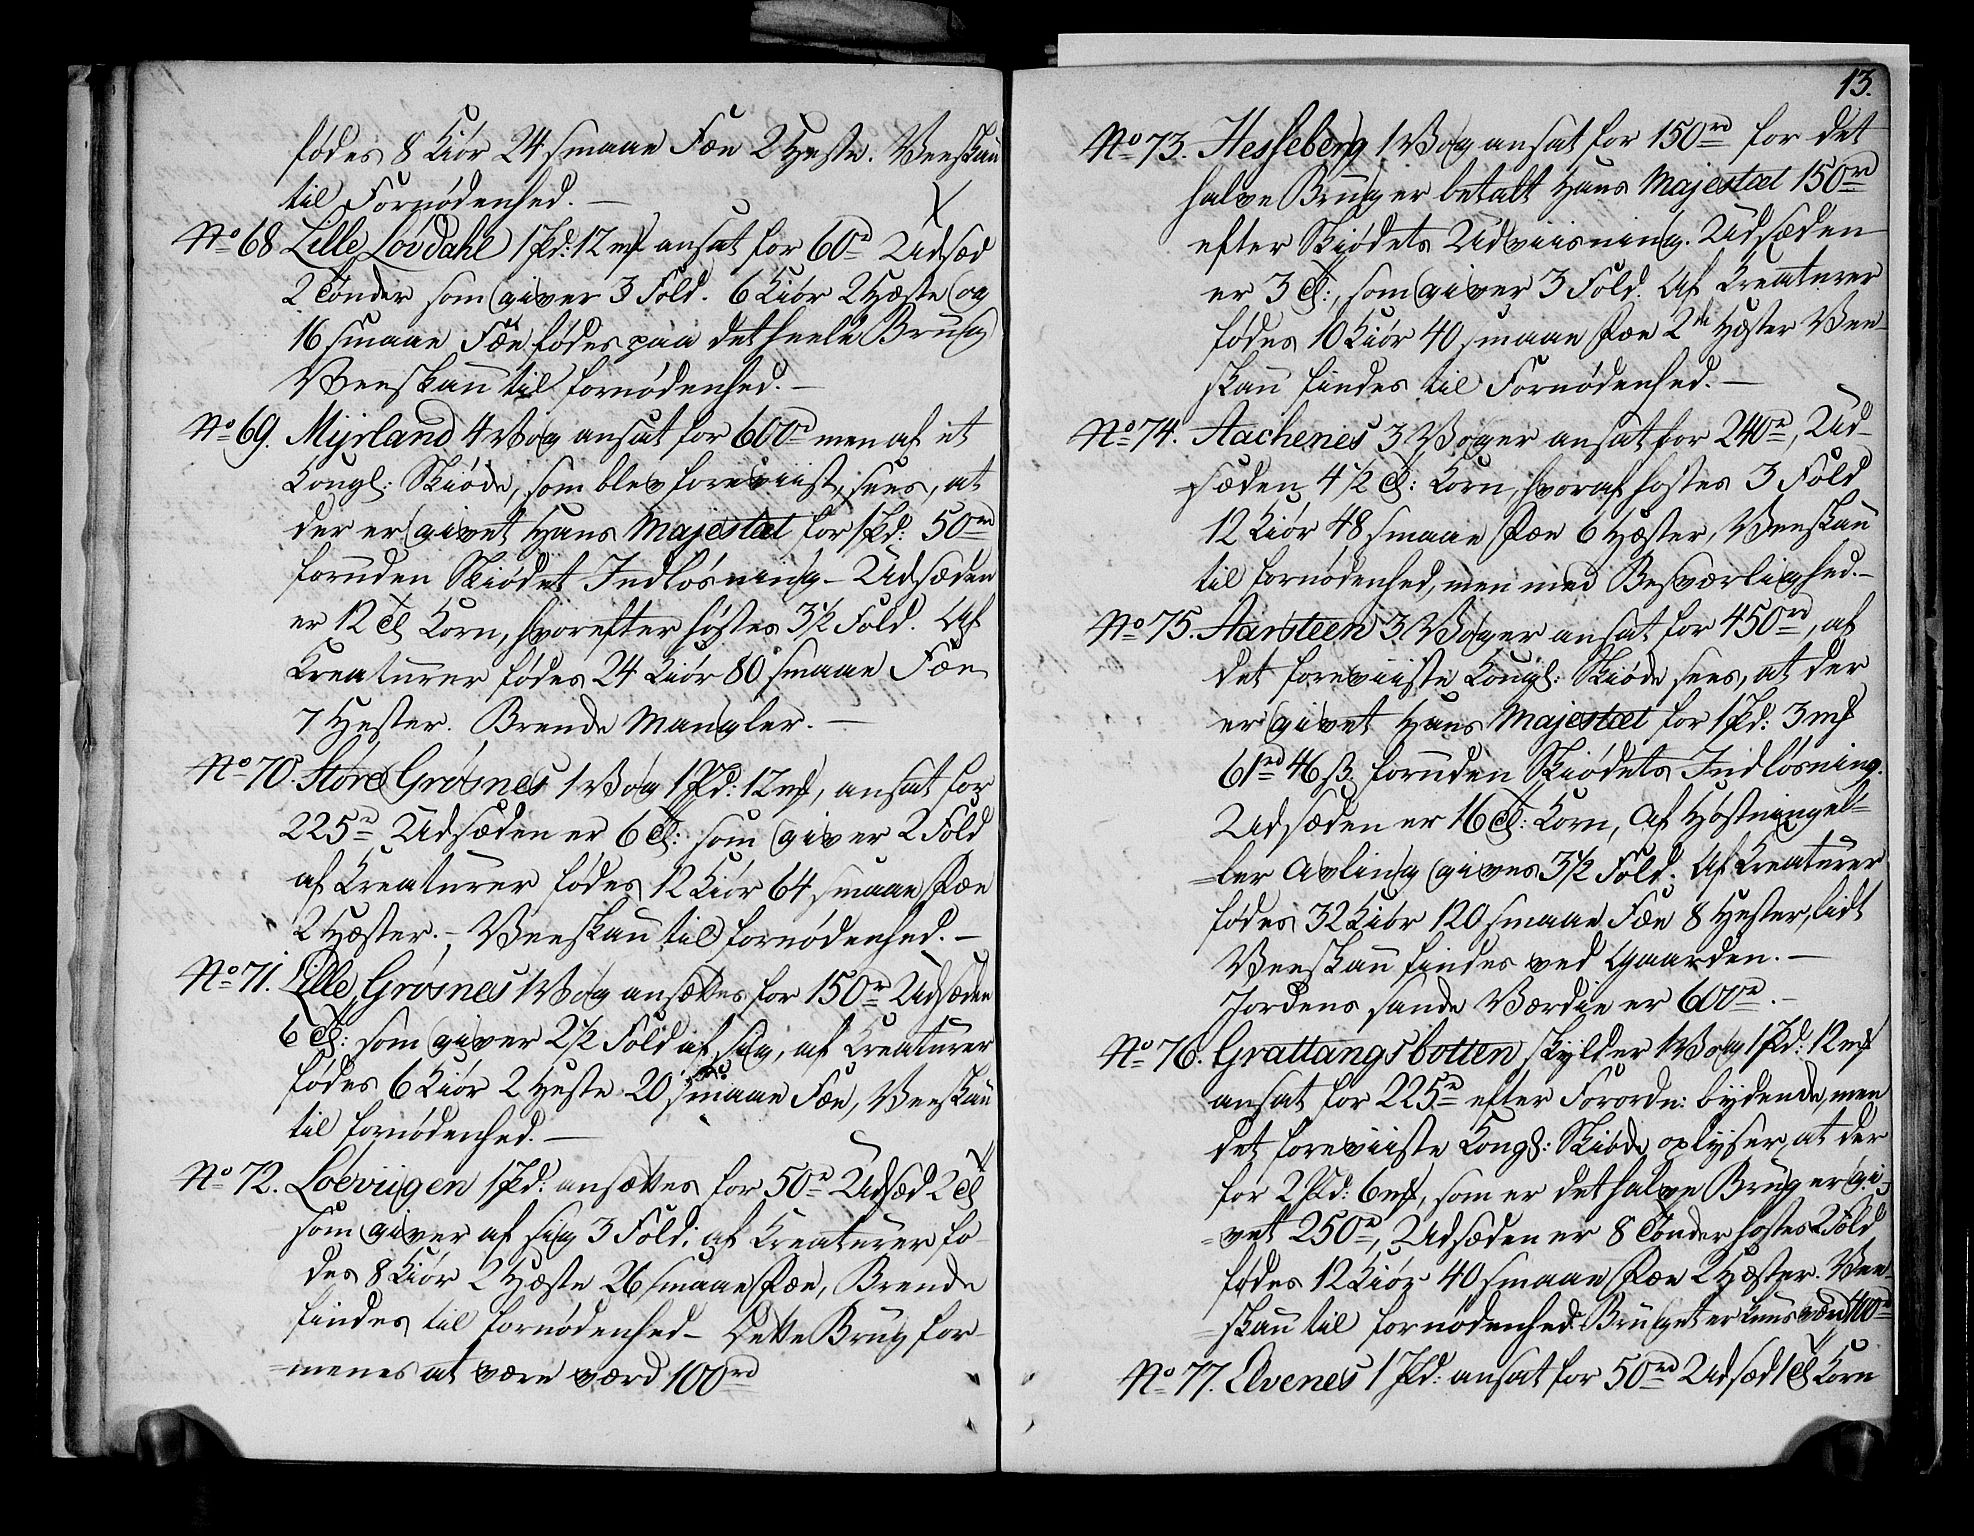 fødes 8 Kiør 24 smaae Fæe 2 Heste. Veeskau
til Fornødenhed. —
No 68 Lille Løvdahl 1 Pd: 12 mk ansat for 60rd Udsæd
2 Tønder som giver 3 Fold. 6 Kiør 2 Hæste og
16 smaae Fæe fødes paa det heele Brug
Veeskau til fornødenhed. —
No 69. Myrland 4 Vog ansat for 600rd men af et
Kongl: Skiøde, som blev foreviist, sees, at
der er givet Hans Majestæt for 1 Pd: 50rd
foruden Skiødet Indløsning — Udsæden
er 12 Td Korn, hvorefter høstes 3½ Fold. Af
Kreaturer fødes 24 Kiør 80 smaae Fæe
7 Hester. Brende Mangler. —
No 70. Store Grøsnes 1 Vog 1 Pd: 12 mk, ansat for
225rd Udsæden er 6 Td: som giver 2 Fold
af Kreaturer fødes 12 Kiør 64 smaae Fæe
2 Hæster. — Veeskau til fornødenhed. —
No 71. Lille Grøsnes 1 Vog ansættes for 150rd Udsæden
6 Td: som giver 2½ Fold af sig, af Kreaturer
fødes 6 Kiør 2 Heste 20 smaae Fæe, Veeskau
til fornødenhed. —
No 72. Loeviigen 1 Pd: ansættes for 50rd Udsæd 2 Td
som giver af sig 3 Fold; af Kreaturer fø-
des 8 Kiør 2 Hæste 26 smaae Fæe, Brende
findes til fornødenhed — Dette Brug for-
=menes at være værd 100rd
13.
No 73. Hesseberg 1 Vog ansat for 150rd for det
halve Brug er betalt Hans Majestæt 150rd
efter Skiødets Udviisning. Udsæden
er 3 Td:, som giver 3 Fold. Af Kreaturer
fødes 10 Kiør 40 smaae Fæe 2de Hæster Vee-
skau findes til Fornødenhed. —
No 74. Aachenes 3 Voger ansat for 240rd, Ud-
=sæden 4½ Td: Korn, hvoraf høstes 3 Fold
12 Kiør 48 smaae Fæe 6 Hæster, Veeskau
til fornødenhed, men med Besværlighed. —
No 75. Aarsteen 3 Voger ansat for 450rd, af
det foreviiste Kongl: Skiøde sees, at der
er givet Hans Majestæt for 1 Pd: 3 mk
61rd 46 ß. foruden Skiødets Indløsning.
Udsæden er 16 Td: Korn, af Høstningel=
=ler Avling gives 3½ Fold. Af Kreaturer
fødes 32 Kiør 120 smaae Fæe 8 Hester, lidt
Veeskau findes ved Gaarden. —
Jordens sande Værdie er 600rd. —
No 76. Grattangsbotten skylder 1 Vog 1 Pd: 12 mk
ansat for 225rd efter Forordn: bydende, men
det foreviiste Kongl: Skiøde oplyser, at der
for 2 Pd: 6 mk, som er det halve Brug er gi-
=vet 250rd, Udsæden er 8 Tønder høstes 2 Fold
fødes 12 Kiør 40 smaae Fæe 2 Hæster. Vee-
=skau til fornødenhed. Bruget er kuns værd 400rd
No 77. Elvenes 1 Pd: ansat for 50rd Udsæd 1 Td Korn